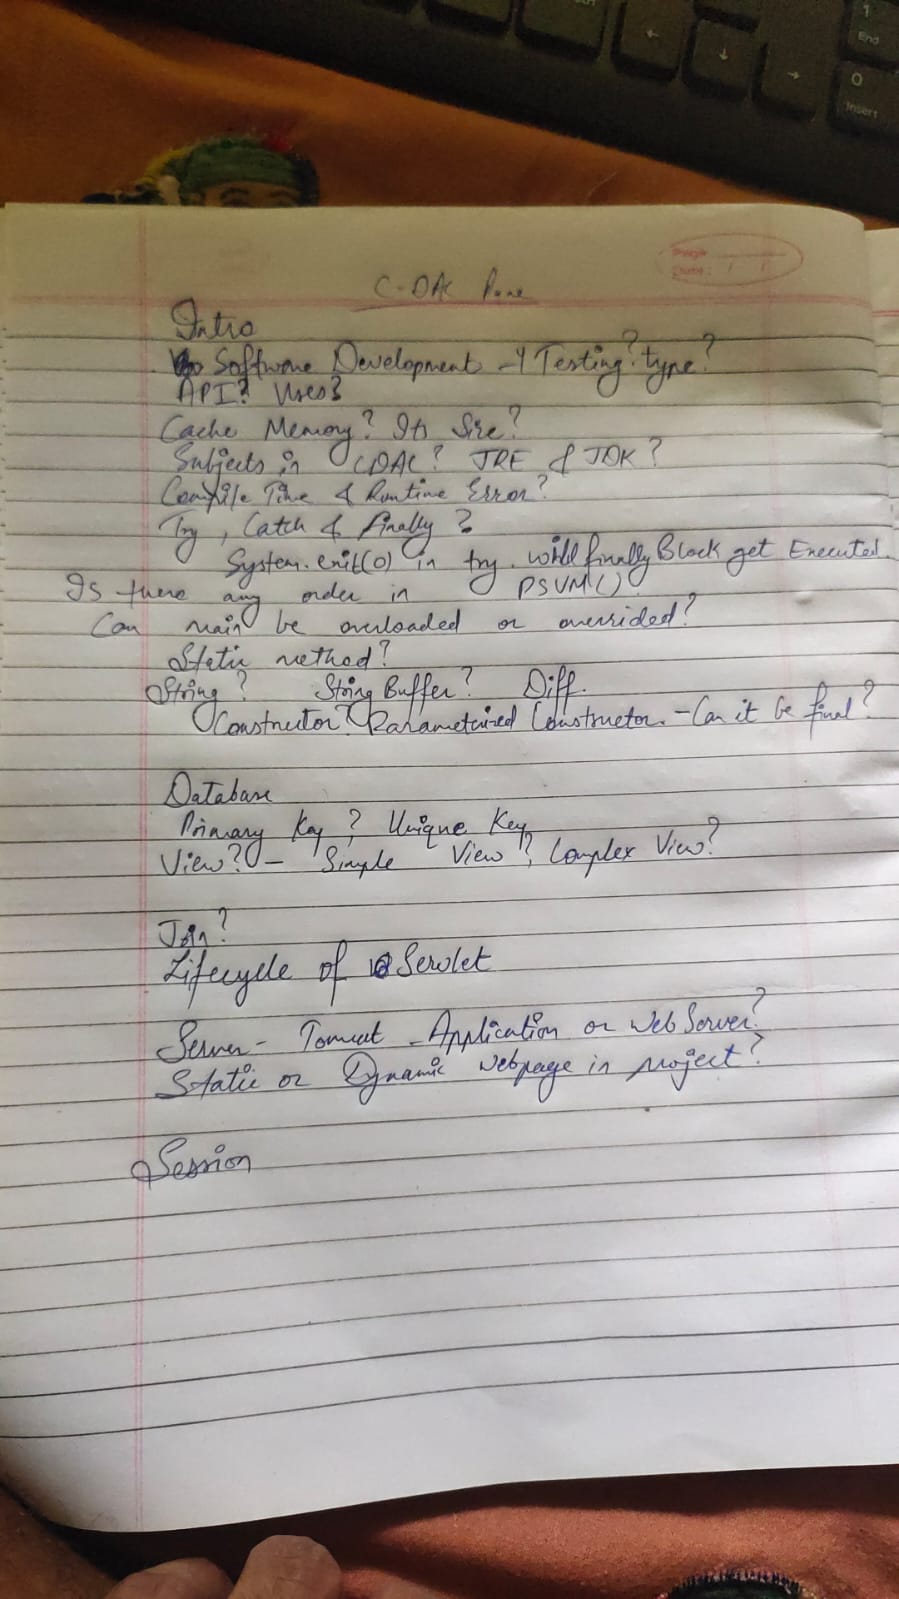 End
0
Insert
Page
Date: / /
C-DAC Pune
Intro
Software Development - 4 Testing? type?
API? Uses?
Cache Memory? Its Size?
Subjects in CDAC? JRE & JDK?
Compile Time & Runtime Error?
Try, Catch & finally?
System.exit(0) in try. will finally Block get Executed.
Is there any order in PSVM()?
Can main be overloaded or overrided?
Static method?
String? String Buffer? Diff.
Constructor? Parameterized Constructor. - Can it be final?
Database
Primary Key? Unique Key
View? - Simple View? Complex View?
Join?
Lifecycle of Servlet
Server - Tomcat - Application or Web Server?
Static or Dynamic webpage in project?
Session